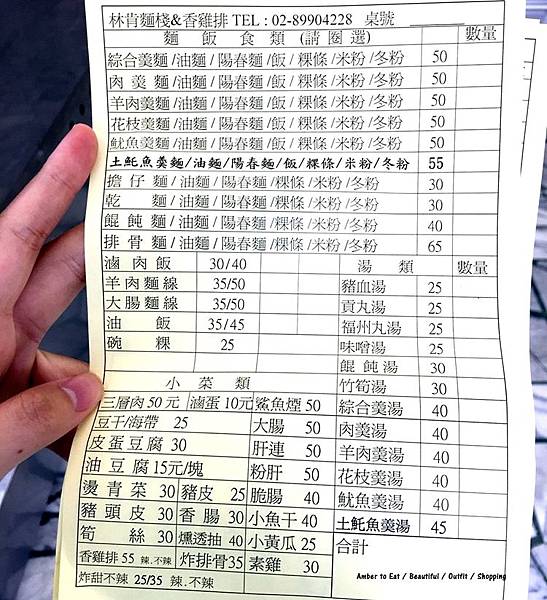 林肯麵棧&香雞排 TEL : 02-89904228 桌號
麵 飯 食 類 (請 圈 選) 數量
綜合羹麵 /油麵 / 陽春麵 /飯 / 粿條 /米粉 /冬粉 50
肉 羹 麵 /油麵 / 陽春麵 /飯 / 粿條 /米粉 /冬粉 50
羊肉羹麵 /油麵 / 陽春麵 /飯 / 粿條 /米粉 /冬粉 50
花枝羹麵 /油麵 / 陽春麵 /飯 / 粿條 /米粉 /冬粉 50
魷魚羹麵 /油麵 / 陽春麵 /飯 / 粿條 /米粉 /冬粉 50
土魠魚羹麵/油麵/陽春麵/飯/粿條/米粉/冬粉 55
擔 仔 麵 / 油麵 / 陽春麵 /粿條 /米粉 /冬粉 30
乾 麵 / 油麵 / 陽春麵 /粿條 /米粉 /冬粉 30
餛 飩 麵 / 油麵 / 陽春麵 /粿條 /米粉 /冬粉 40
排 骨 麵 / 油麵 / 陽春麵 /粿條 /米粉 /冬粉 65
滷 肉 飯 30/40
羊 肉 麵 線 35/50
大 腸 麵 線 35/50
油 飯 35/45
碗 粿 25
湯 類 數量
豬血湯 25
貢丸湯 25
福州丸湯 25
味噌湯 25
餛 飩 湯 30
竹筍湯 30
綜合羹湯 40
肉羹湯 40
羊肉羹湯 40
花枝羹湯 40
魷魚羹湯 40
土魠魚羹湯 45
合計
小 菜 類
三層肉 50 元 滷蛋 10元 鯊魚煙 50
豆干/海帶 25 大腸 50
皮 蛋 豆 腐 30 肝連 50
油 豆 腐 15元/塊 粉肝 50
燙 青 菜 30 豬皮 25 脆腸 40
豬 頭 皮 30 香 腸 30 小魚干 40
筍 絲 30 燻透抽 40 小黃瓜 25
香雞排 55 辣.不辣 炸排骨35 素雞 30
炸甜不辣 25/35 辣.不辣
Amber to Eat / Beautiful / Outfit / Shopping